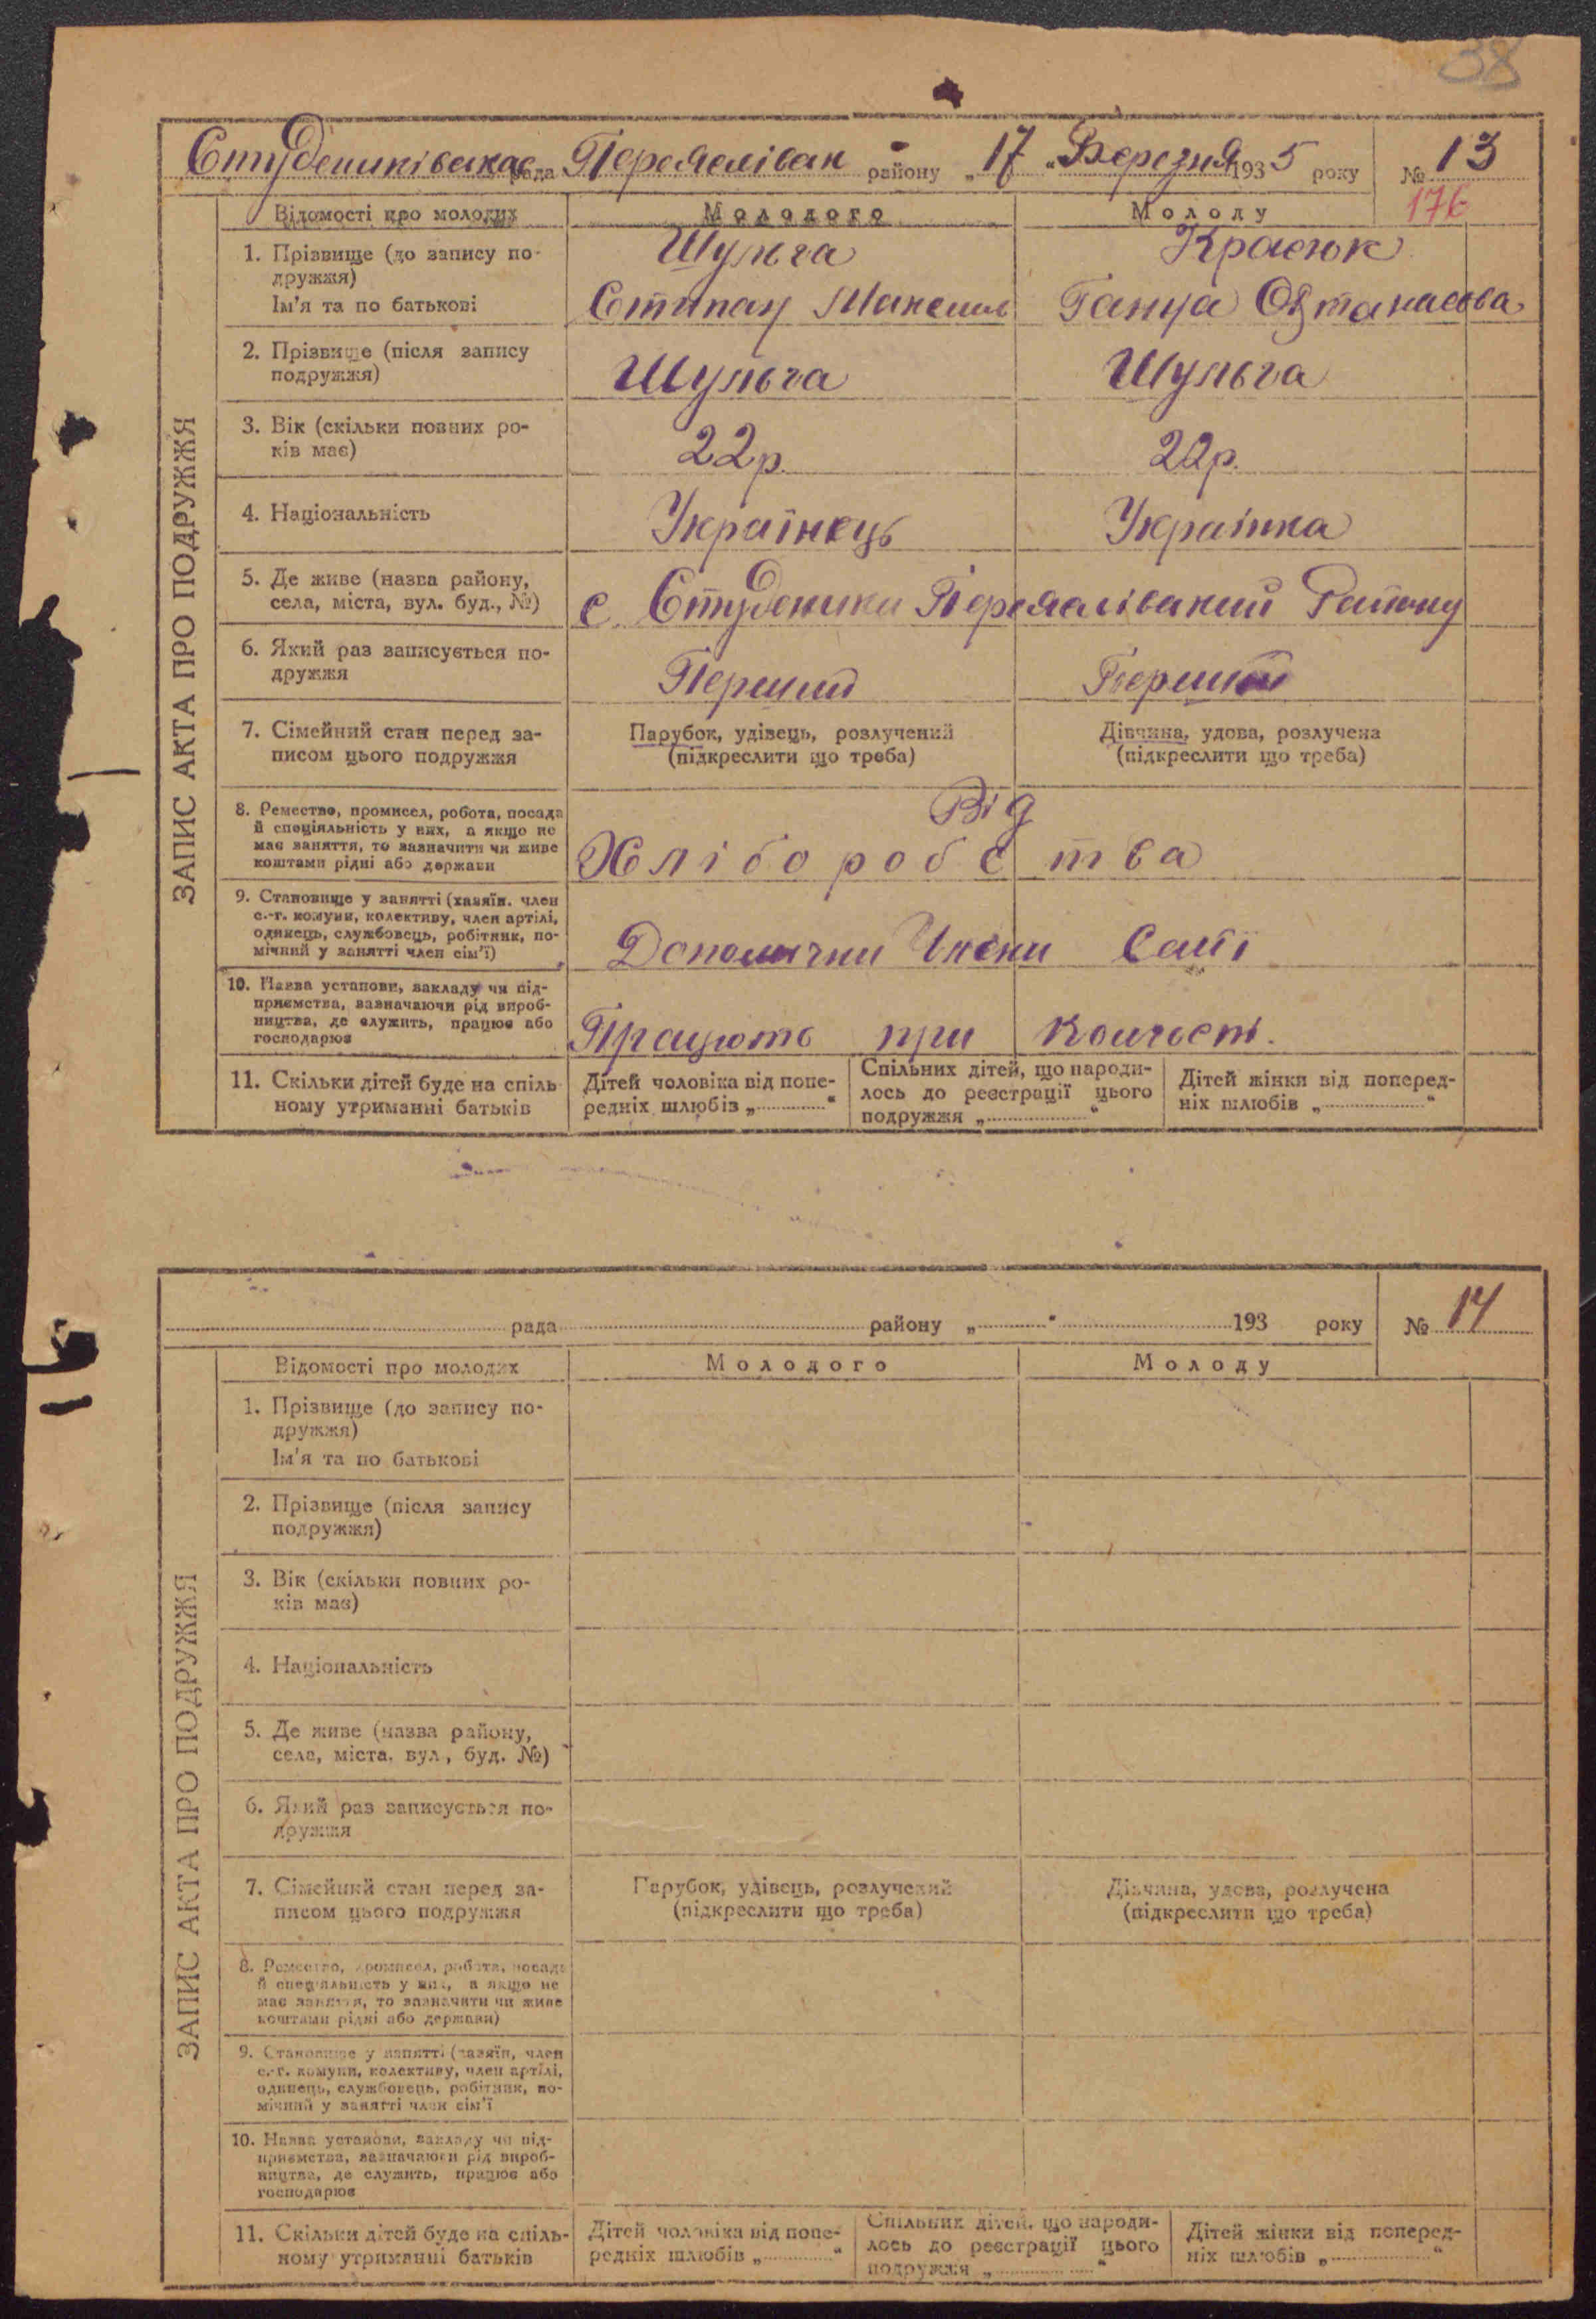 38
Студениківська рада Переяслівськ району „17" Березня 1935 року № 13
176
Відомості про молодих Молодого Молоду
1. Прізвище (до запису по- Шульга Красюк
дружжя)
Ім'я та по батькові Ганна
2. Прізвище (після запису
подружжя) Шульга Шульга
3. Вік (скільки повних ро-
ків має) 22р. 22р.
4. Національність Українець Українка
5. Де живе (назва району,
села, міста, вул. буд., №) с. Студеники Району
6. Який раз записується по-
дружжя Перший Перший
7. Сімейний стан перед за- Парубок, удівець, розлучений Дівчина, удова, розлучена
писом цього подружжя (підкреслити що треба) (підкреслити що треба)
8. Ремество, промисел, робота, посада Від
й спеціяльність у них, а якщо не
має заняття, то зазначити чи живе Хліборобства
коштами рідні або держави
9. Становище у занятті (хазяїн, член
с.-г. комуни, колективу, член артілі,
одинець, службовець, робітник, по- Члени
мічний у занятті член сім'ї)
10. Назва установи, закладу чи під-
приємства, зазначаючи рід вироб-
ництва, де служить, працює або Працюють при
господарює
11. Скільки дітей буде на спіль- Дітей чоловіка від попе- Спільних дітей, що народи- Дітей жінки від поперед-
ному утриманні батьків редніх шлюбів „ " лось до реєстрації цього ніх шлюбів „ "
подружжя „ "
ЗАПИС АКТА ПРО ПОДРУЖЖЯ
рада району „ " 193 року № 14
Відомості про молодих Молодого Молоду
1. Прізвище (до запису по-
дружжя)
Ім'я та по батькові
2. Прізвище (після запису
подружжя)
3. Вік (скільки повних ро-
ків має)
4. Національність
5. Де живе (назва району,
села, міста, вул., буд. №)
6. Який раз записується по-
дружжя
7. Сімейний стан перед за- Парубок, удівець, розлучений Дівчина, удова, розлучена
писом цього подружжя (підкреслити що треба) (підкреслити що треба)
8. Ремество, промисел, робота, посада
й спеціяльність у них, а якщо не
має заняття, то зазначити чи живе
коштами рідні або держави)
9. Становище у занятті (хазяїн, член
с.-г. комуни, колективу, член артілі,
одинець, службовець, робітник, по-
мічний у занятті член сім'ї
10. Назва установи, закладу чи під-
приємства, зазначаючи рід вироб-
ництва, де служить, працює або
господарює
11. Скільки дітей буде на спіль- Дітей чоловіка від попе- Спільних дітей, що народи- Дітей жінки від поперед-
ному утриманні батьків редніх шлюбів „ " лось до реєстрації цього ніх шлюбів „ "
подружжя „ "
ЗАПИС АКТА ПРО ПОДРУЖЖЯ